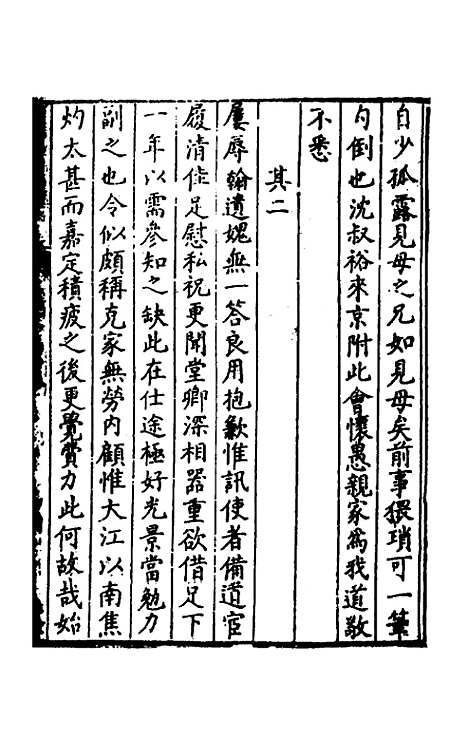 自少孤露見母之兄如見母矣前事猥瑣可一筆
勾倒也沈叔裕來京附此會懷愚親家為我道敬
不悉
其二
屢辱翰遺媿無一答良用抱歉惟訊使者備道宦
履清佳足慰私祝更聞堂卿深相器重欲借足下
一年以需參知之缺此在仕途極好光景當勉力
副之也令似頗稱克家無勞內顧惟大江以南焦
灼太甚而嘉定積疲之後更覺費力此何故哉始